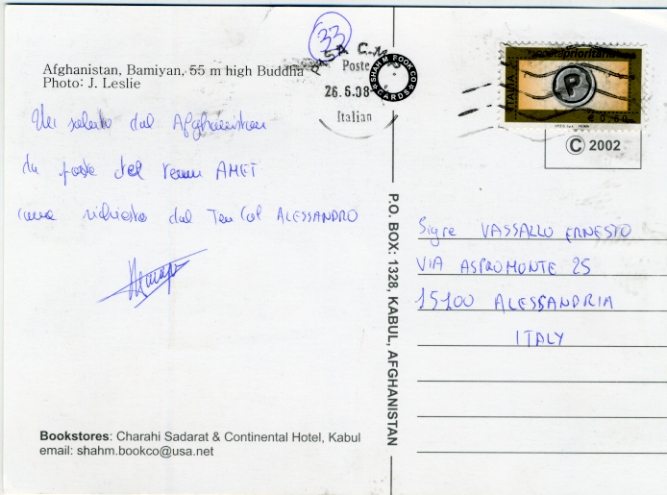 33
Afghanistan, Bamiyan, 55 m high Buddha
Photo: J. Leslie
Poste
26.6.08
Italian
SHAH M. BOOK CO
CARDS
prioritaria
P
ITALIA
€ 0,60
© 2002
Un saluto dal Afghanistan
da parte del team AMET
come richiesto dal Ten Col ALESSANDRO
P.O. BOX: 1328, KABUL, AFGHANISTAN
Sig.re VASSALLO ERNESTO
VIA ASPROMONTE 25
15100 ALESSANDRIA
ITALY
Bookstores: Charahi Sadarat & Continental Hotel, Kabul
email: shahm.bookco@usa.net